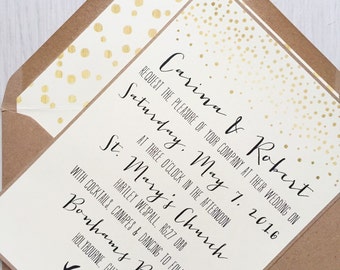 Carina & Robert
REQUEST THE PLEASURE OF YOUR COMPANY AT THEIR WEDDING ON
Saturday, May 7, 2016
AT THREE O'CLOCK IN THE AFTERNOON
St. Mary's Church
HARTLEY WESPALL, RG27
WITH COCKTAILS, CANAPES & DANCING TO
Bonhams